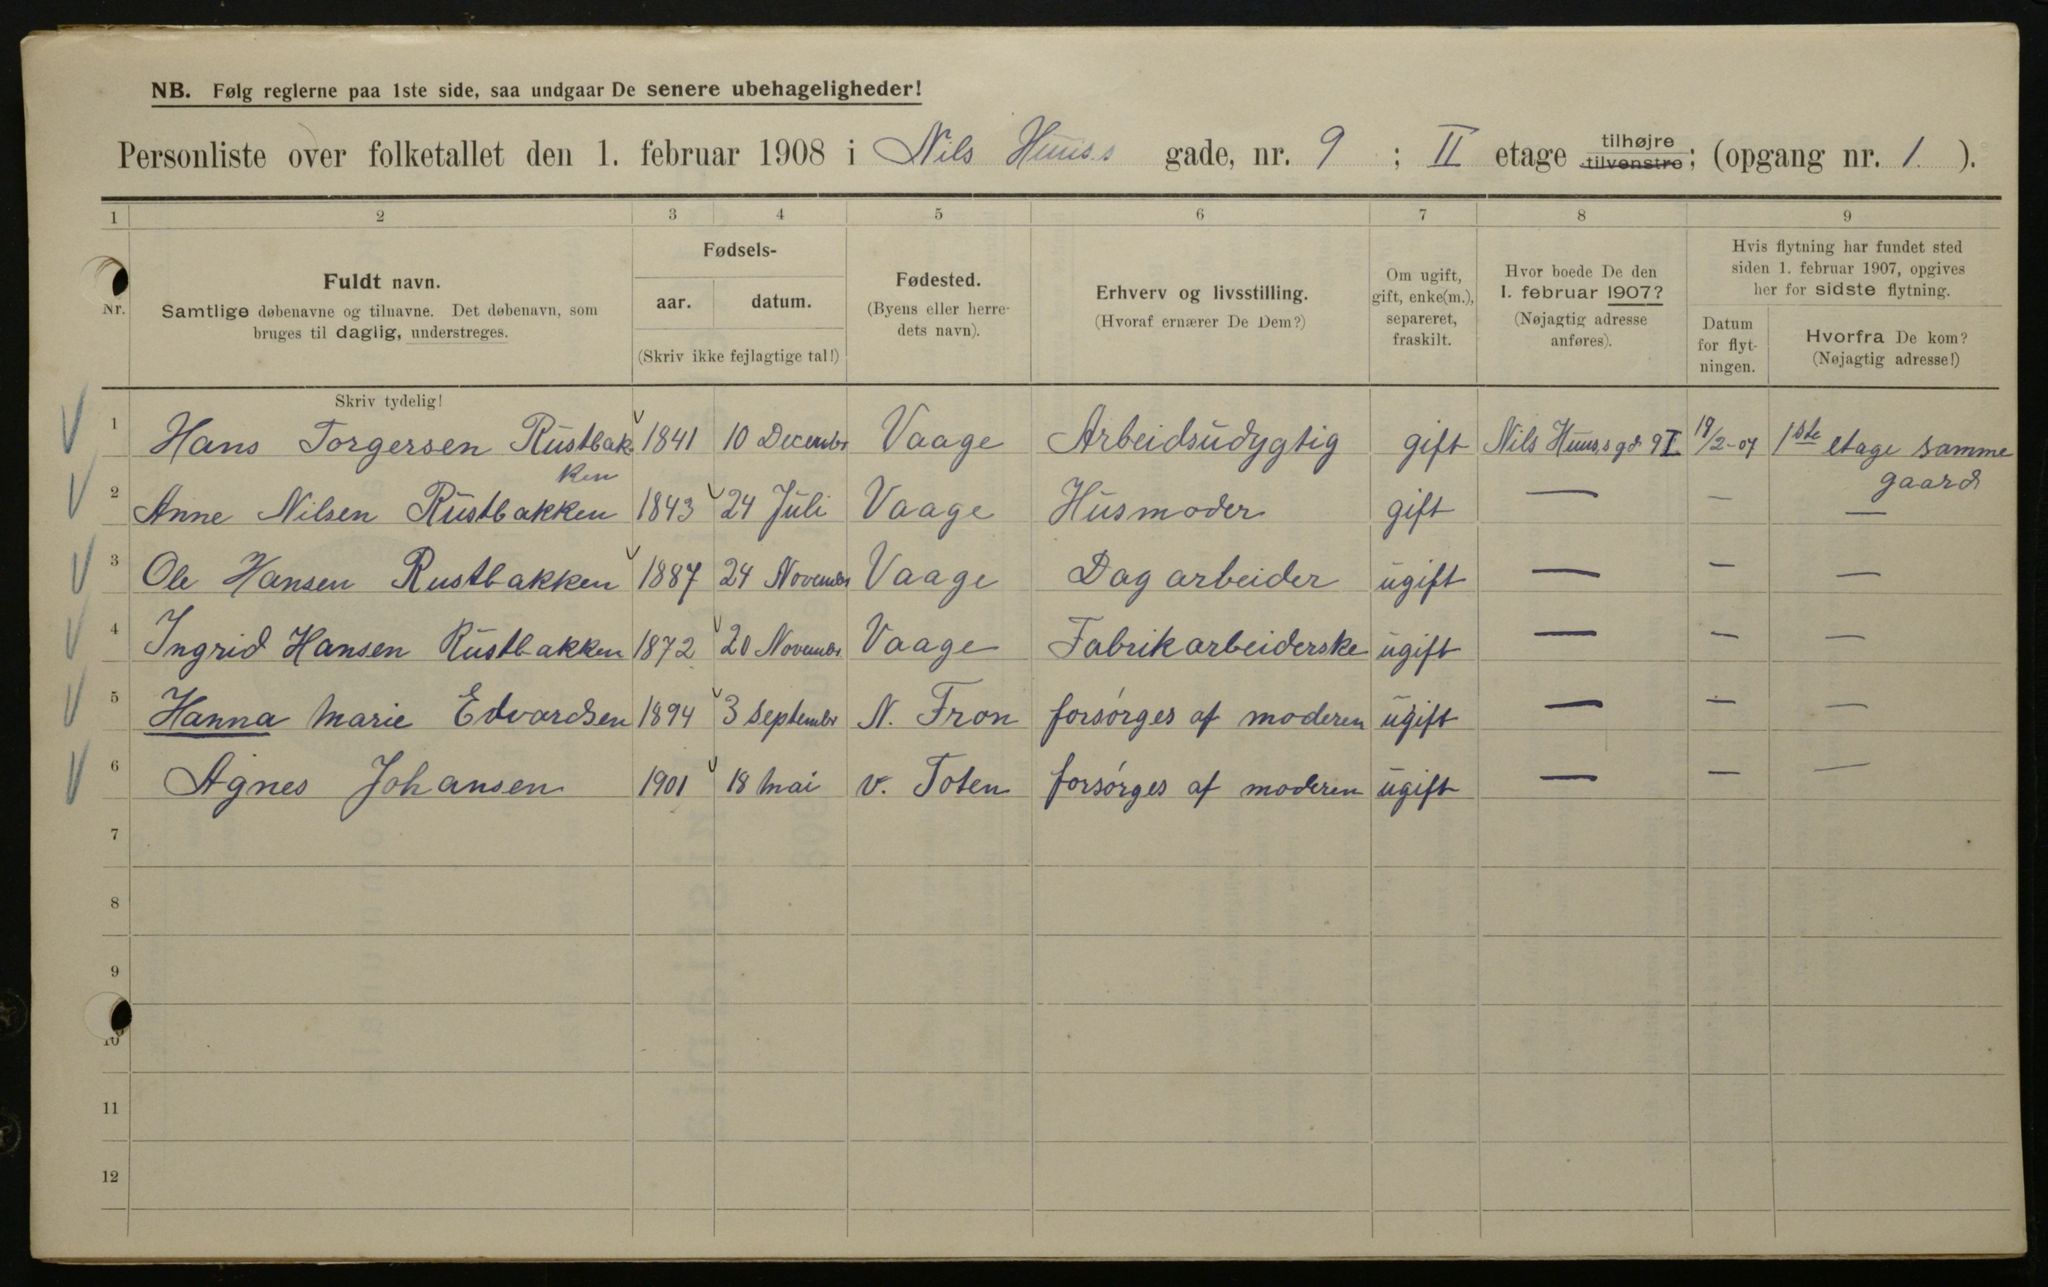 NB. Følg reglerne paa 1ste side, saa undgaar De senere ubehageligheder!
Personliste over folketallet den 1. februar 1908 i Nils Huus.s gade, nr. 9 ; II etage tilhøjre tilvenstre; (opgang nr. 1 ).
1 2 3 4 5 6 7 8 9
Nr.
Fuldt navn.
Samtlige døbenavne og tilnavne. Det døbenavn, som
bruges til daglig, understreges.
Fødsels-
aar. datum.
(Skriv ikke fejlagtige tal!)
Fødested.
(Byens eller herre-
dets navn).
Erhverv og livsstilling.
(Hvoraf ernærer De Dem?)
Om ugift,
gift, enke(m.),
separeret,
fraskilt.
Hvor boede De den
1. februar 1907?
(Nøjagtig adresse
anføres).
Hvis flytning har fundet sted
siden 1. februar 1907, opgives
her for sidste flytning.
Datum
for flyt-
ningen.
Hvorfra De kom?
(Nøjagtig adresse!)
Skriv tydelig!
1 Hans Torgersen Rustbak 1841 10 Decembr Vaage Arbeidsudygtig gift Nils Huus,s gd 9 I 19/2-07 1ste etage samme
ken gaard
2 Anne Nilsen Rustbakken 1843 24 Juli Vaage Husmoder gift — — —
3 Ole Hansen Rustbakken 1887 24 Novembr Vaage Dagarbeider ugift — — —
4 Ingrid Hansen Rustbakken 1872 20 Novembr. Vaage Fabrikarbeiderske ugift — — —
5 Hanna Marie Edvardsen 1894 3 septembr N. Fron forsørges af moderen ugift — — —
6 Agnes Johansen 1901 18 mai v. Toten forsørges af moderen ugift — — —
7
8
9
10
11
12